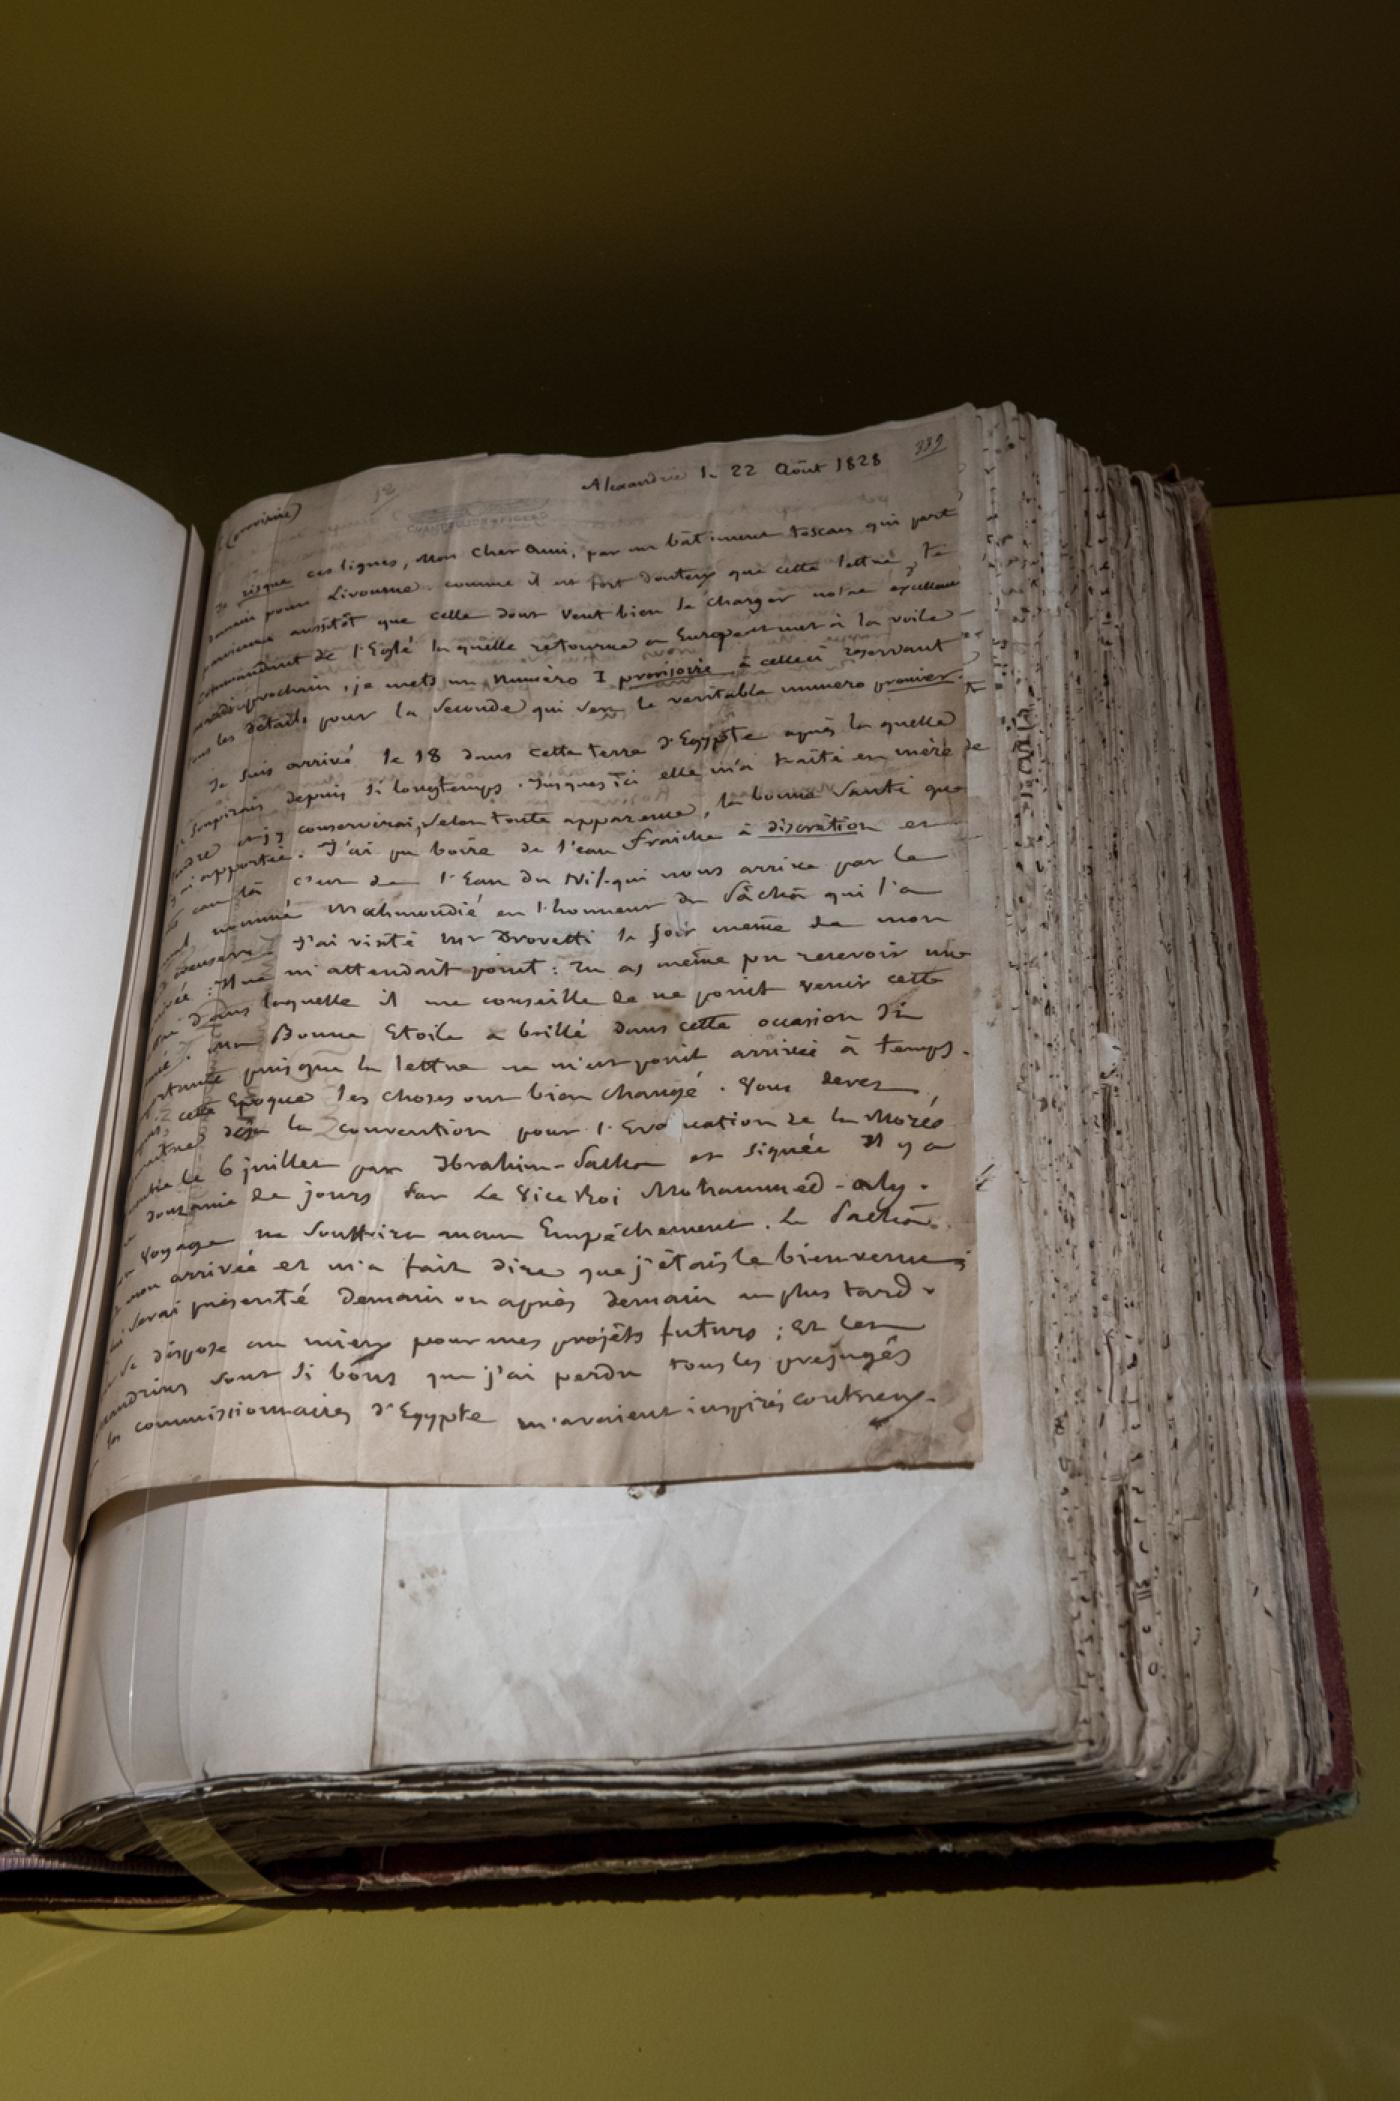 Alexandrie le 22 Août 1828
339
18
(Provisoire)
Je risque ces lignes, mon cher ami, par un bâtiment toscan qui part
demain pour Livourne. comme il est fort douteux que cette lettre te
parvienne aussitôt que celle dont veut bien se charger notre excellent
commandant de l'Eglé laquelle retourne en Europe et met à la voile
prochain, je mets un numéro I provisoire à celle-ci réservant
tous les détails pour la seconde qui sera le véritable numéro premier.
Je suis arrivé le 18 dans cette terre d'Egypte après la quelle
je soupirais depuis si longtemps. Jusques ici elle m'a traité en mère
et j'y conserverai, selon toute apparence, la bonne santé que
j'y ai apportée. J'ai pu boire de l'eau fraiche à discrétion et
cette eau là c'est de l'Eau du Nil qui nous arrive par le
canal nommé Mahmoudié en l'honneur du Pâcha qui l'a
J'ai visité Mr Drovetti le soir même de mon
arrivée: Il ne m'attendait point: Tu as même pu recevoir une
dans laquelle il me conseille de ne point venir cette
Ma Bonne Etoile a brillé dans cette occasion si
importante puisque la lettre ne m'est point arrivée à temps.
cette Epoque les choses ont bien changé. Vous devez
connaitre déjà la convention pour l'Evacuation de la Morée
le 6 juillet par Ibrahim-Pacha et signée Il y a
douzaine de jours par Le Vice Roi Mohammed-aly.
voyage ne souffrira aucun Empêchement. Le Pacha
mon arrivée et m'a fait dire que j'étais le bienvenu;
je lui serai présenté demain ou après demain au plus tard.
se dispose au mieux pour mes projets futurs; Et les
Alexandrins sont si bons que j'ai perdu tous les préjugés
que les commissionnaires d'Egypte m'avaient inspirés contr'eux.